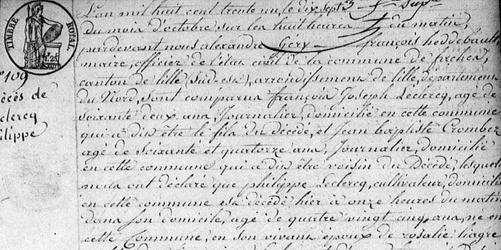 TIMBRE ROYAL
N° 109
Décès de
Leclercq
Philippe
L'an mil huit cent trente un le dix sept
du mois d'octobre sur les huit heures du matin,
pardevant nous alexandre Géry françois hoddebault
maire, officier de l'état civil de la commune de frches,
canton de lille Sud-est, arrondissement de lille, département
du Nord, sont comparus françois Joseph Leclercq, agé de
soixante deux ans, journalier, domicilié en cette commune
qui a dis être le fils du Décédé, et jean baptiste Crombez
agé de Soixante et quatorze ans, journalier, domicilié
en cette commune qui a dis être voisin du Décédé, lesquels
nous ont déclaré que philippe Leclercq, cultivateur, domicilié
en cette commune est décédé hier à onze heures du matin
dans son domicile, agé de quatre vingt cinq ans, né en
cette Commune, en son vivant époux de rosalie liagre